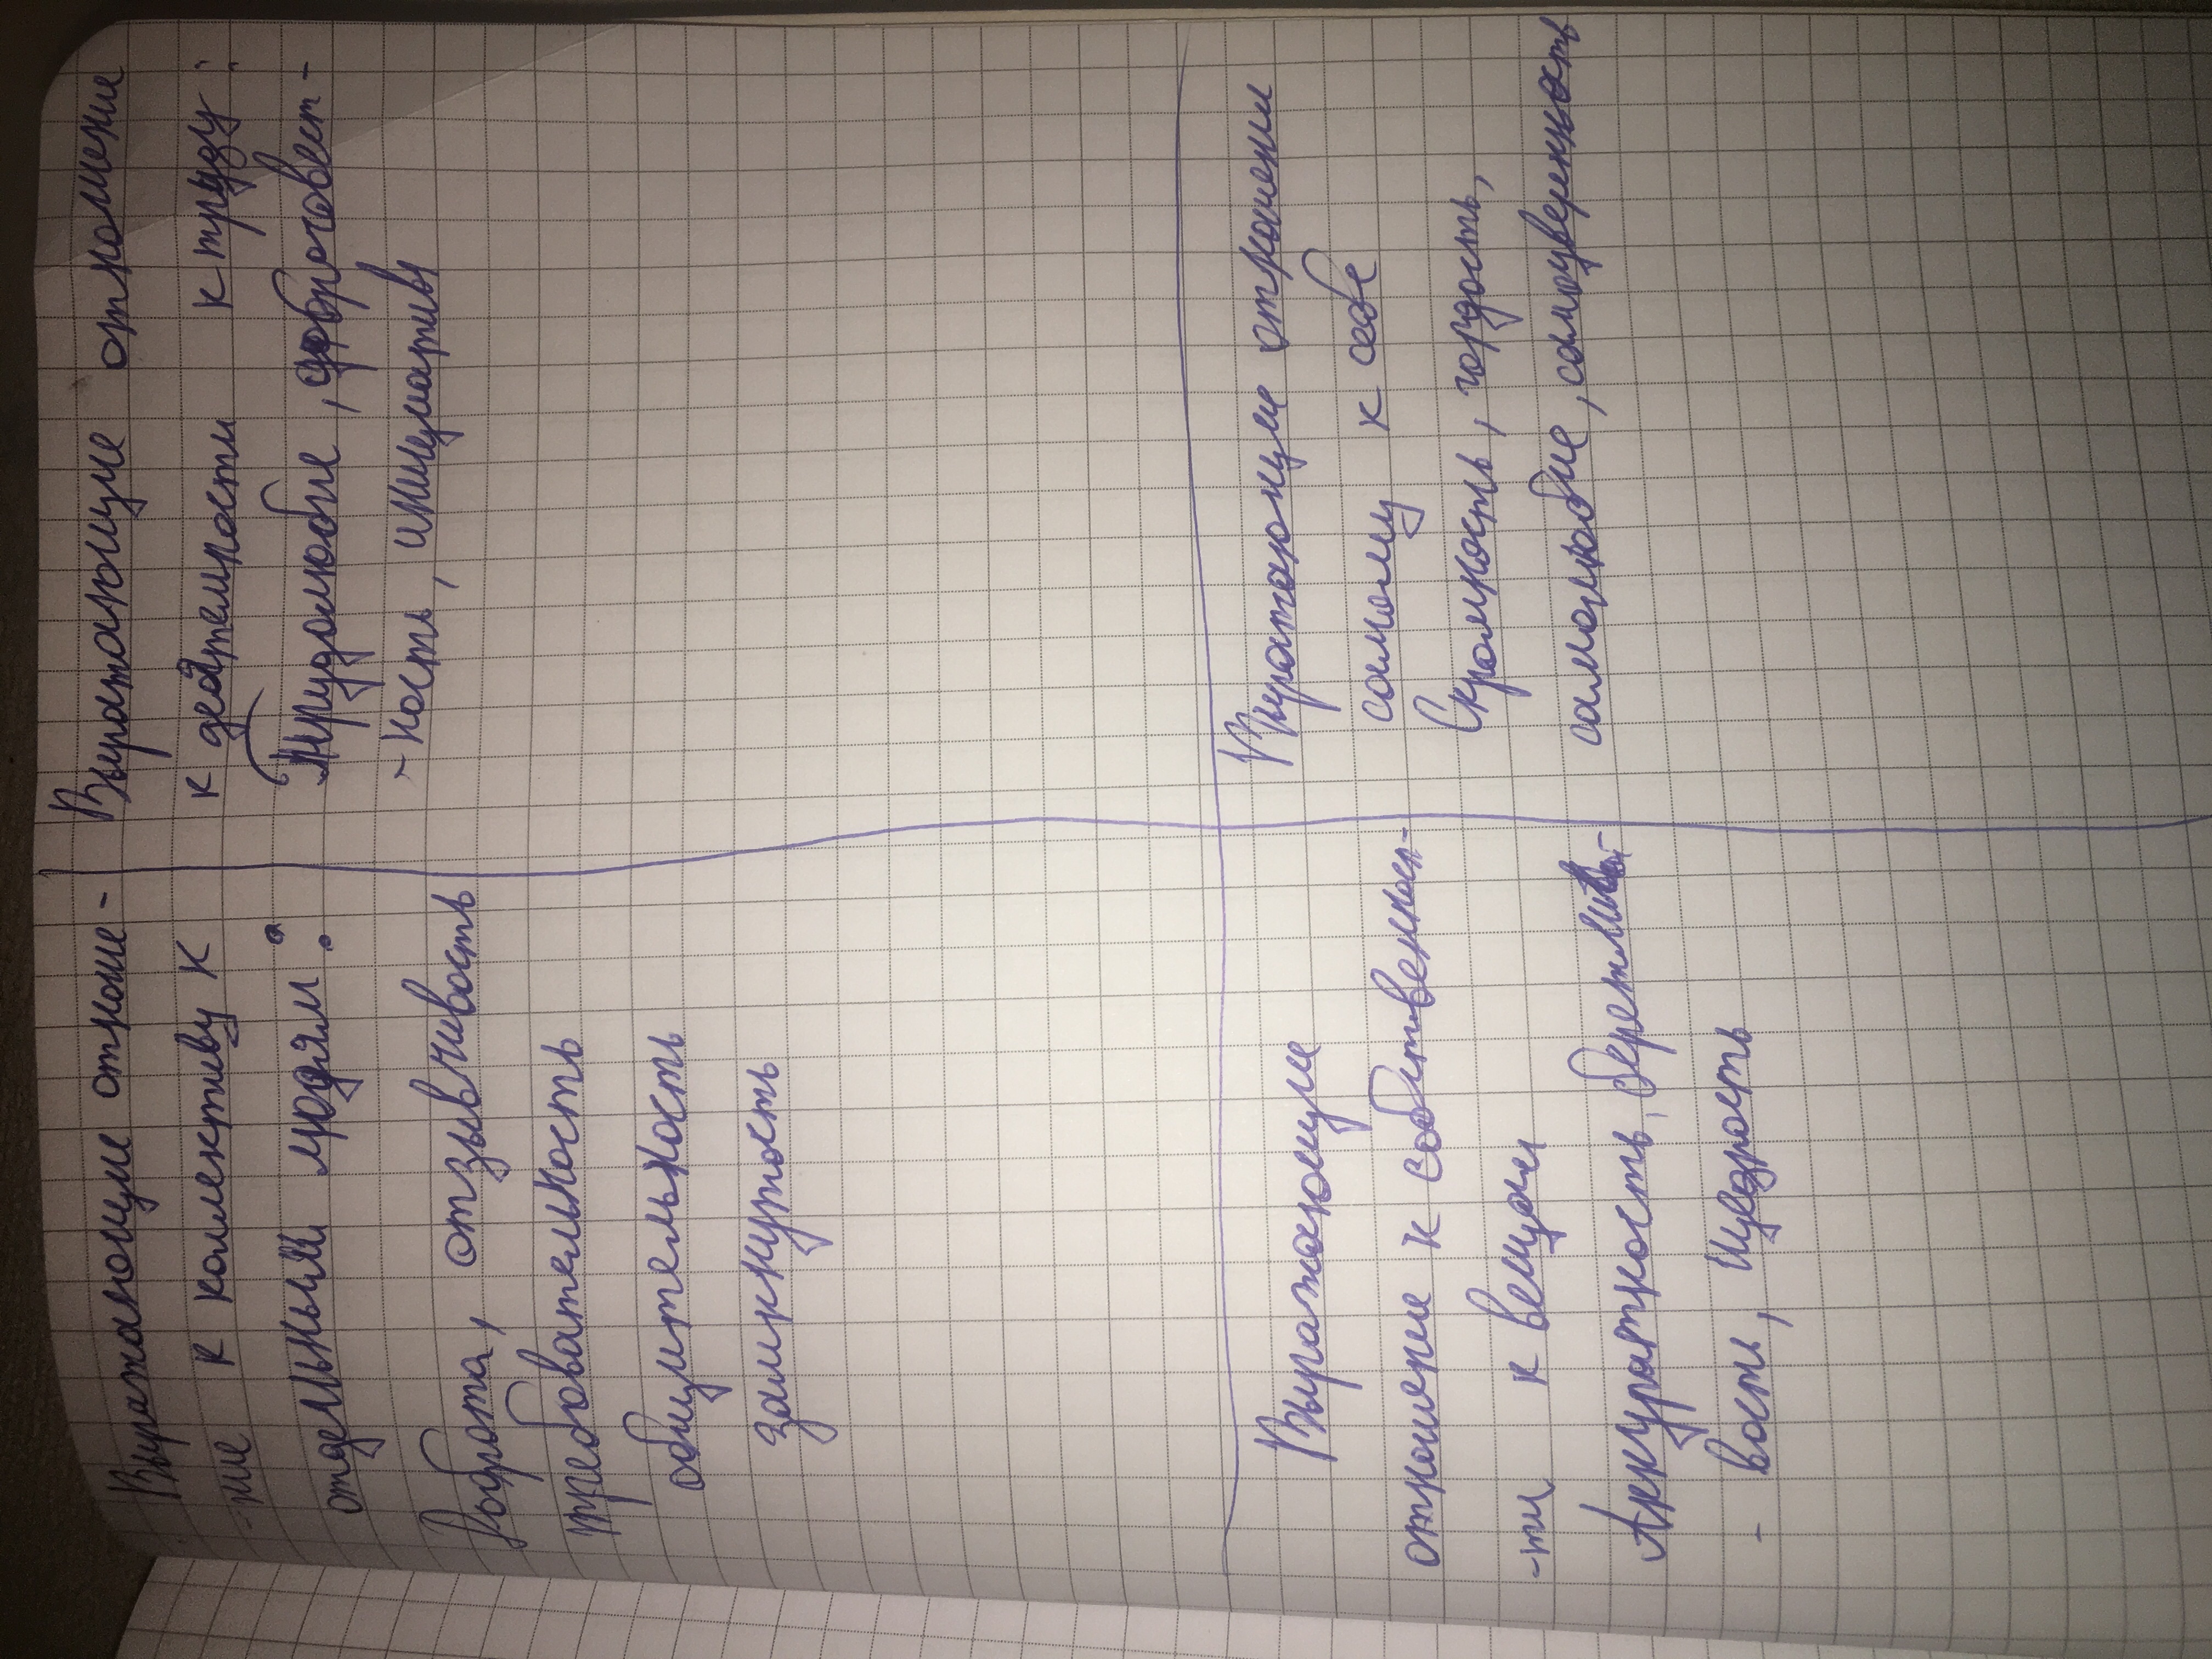 Выражающие отноше-
-ние к колективу к
отдельным людям:
Доброта, отзывчивость
требовательность
общительность
замкнутость
Выражающие отношение
к деятельности к труду:
Трудолюбие, добросовест-
-ность, инициативы
Выражающие
отношение к собственнос-
-ти к вещам
Аккуратность, бережли-
-вость, щедрость
Выражающие отношени
самому к себе
Скромность, гордость,
самолюбие, самоуверенность